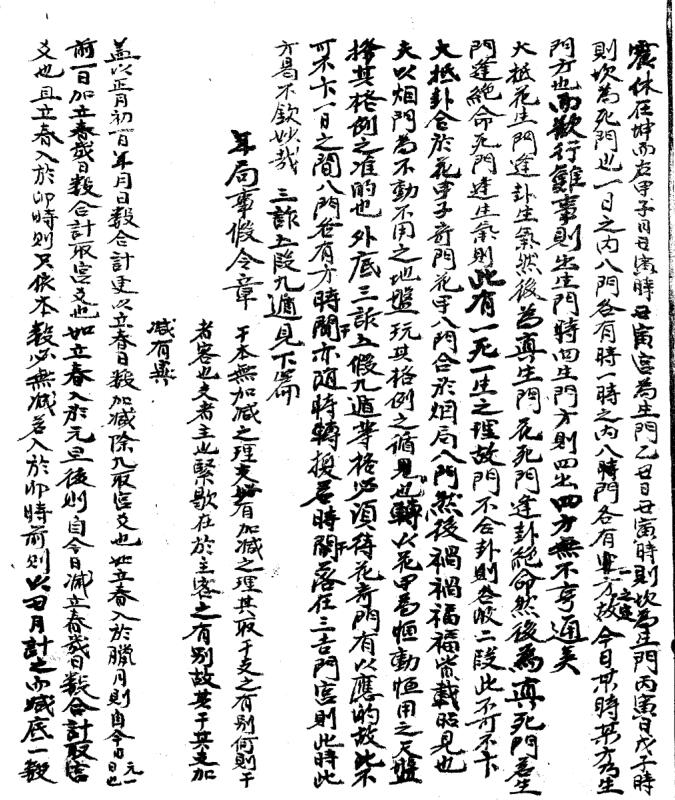 震休在坤而右甲子日丑寅時丑寅宮為生門乙丑日丑寅時則坎為生門丙寅日戊子時
則坎為死門也一日之內八門各有時一時之內八時門各有方故今日某時某方為生
門方也而欲行雖事則出生門時四生門方則四出四方無不亨通矣
大抵花生門逢卦生氣然後為真生門花死門逢卦絕命然後為真死門若生
門逢絕命死門逢生氣則此有一死一生之理故門不合卦則卷收二段此不可不卞
大抵卦合於花甲子奇門花甲八門合於烟局八門然後禍禍福福皆載昭見也
夫以烟門為不動不用之地盤玩其格例之循見也轉以花甲為恒動恒用之天盤
撥其格例之准的也外底三詐五假九遁等格必須待花奇門有以應的故此不
可不卞一日之間八門各有方時間亦随時轉換若時開落在三吉門宮則此時此
方昌不欽妙哉 三詐五段九遁見下篇
年局事假令章
干本無加減之理支有加減之理其取干支之有别何則干
者客也支者主也緊歇在於主客之有别故其干其支加
減有異
盖以正月初一日年月日數合計更以立春日數加減除九取宮爻也如立春入於臘月則自今日元一日也
前一日加立春歲日數合計取宮爻也如立春入於元旦後則自今日減立春歲日數合計取宮
爻也且立春入於卯時則只依本數必無減若入於卯時前則以丑月計之而減底一數